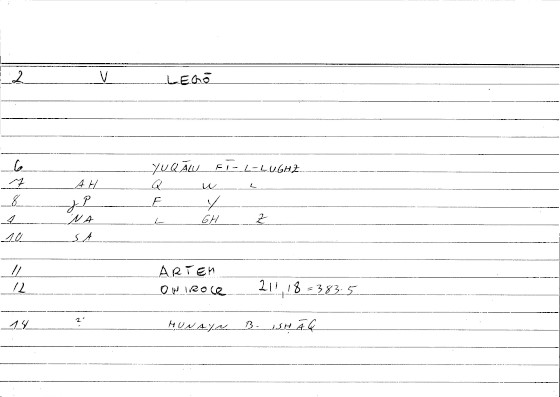 2 V LEGŌ
6 YUQĀLU FĪ-L-LUGHZ
7 AH Q W L
8 gP F Y
1 NA L GH Z
10 SA
11 ARTEM
12 ONIROCR 211,18=383.5
14 2' HUNAYN B- ISHĀQ